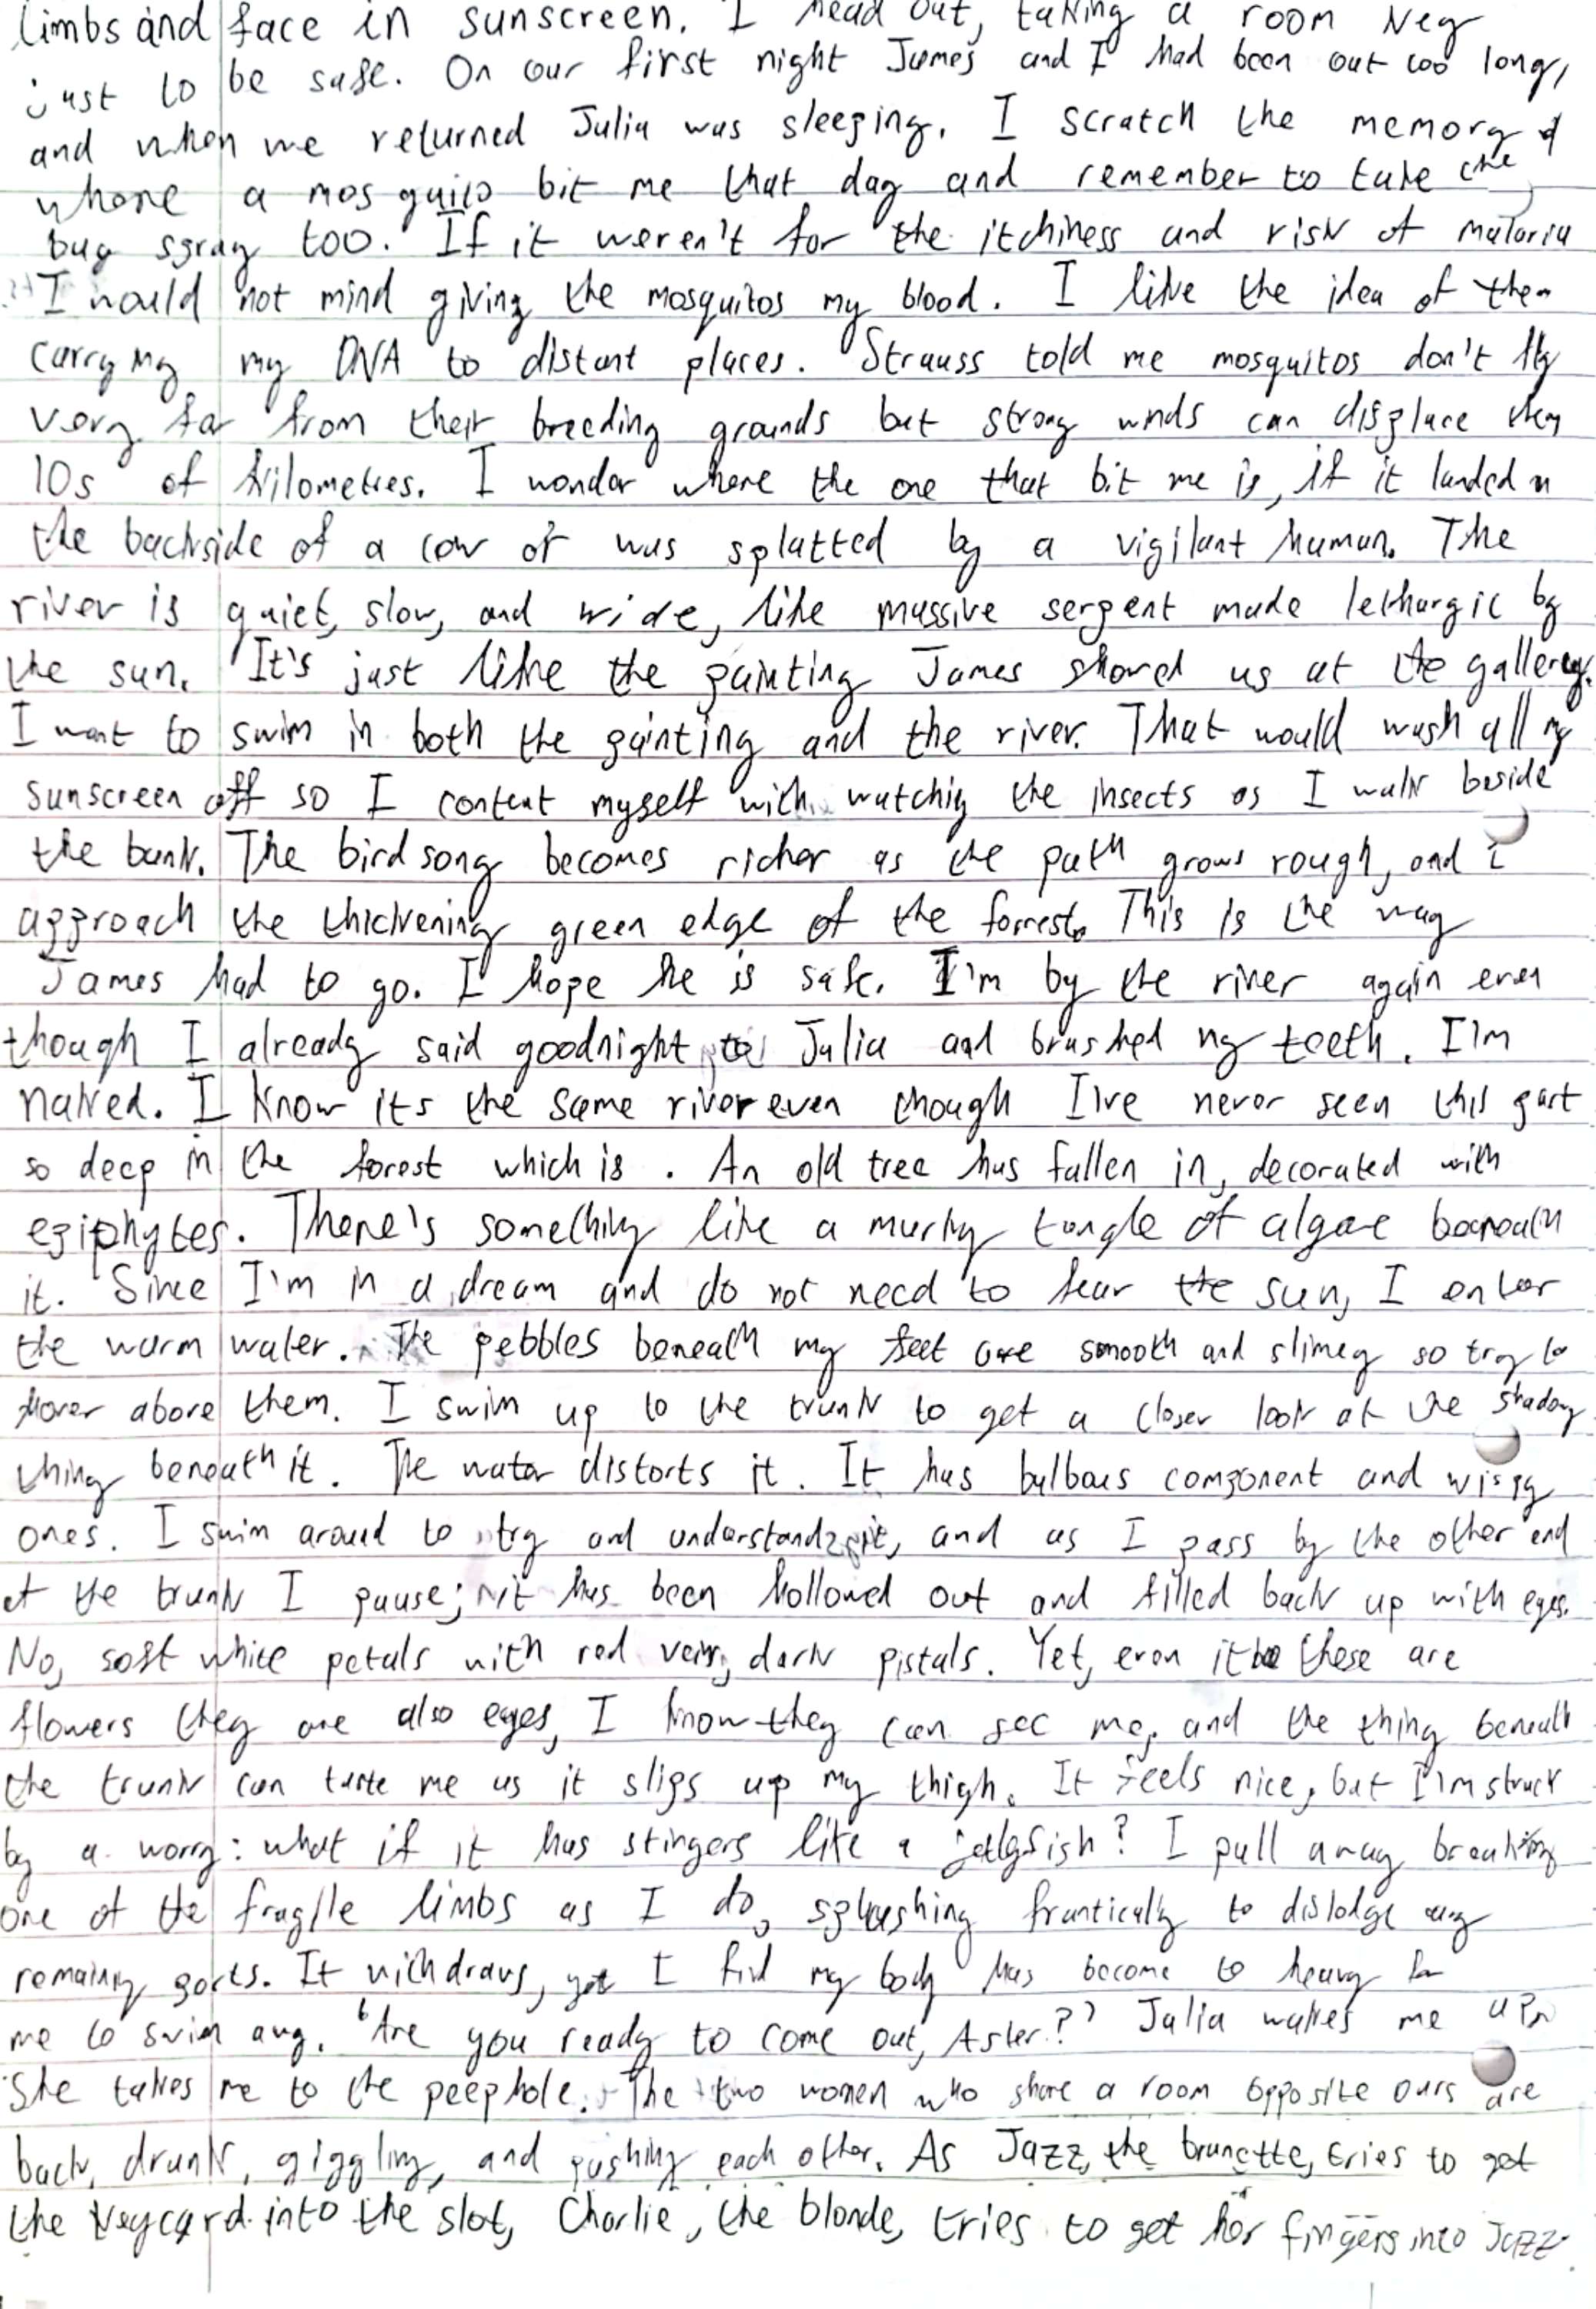 limbs and face in sunscreen. I head out, taking a room key
just to be safe. On our first night James and I had been out too long,
and when we returned Julia was sleeping. I scratch the memory of
where a mosquito bit me that day and remember to take the
bug spray too. If it weren't for the itchiness and risk of malaria
I would not mind giving the mosquitos my blood. I like the idea of them
carrying my DNA to distant places. Strauss told me mosquitos don't fly
very far from their breeding grounds but strong winds can displace them
10s of kilometres. I wonder where the one that bit me is, if it landed on
the backside of a cow or was splatted by a vigilant human. The
river is quiet, slow, and wide, like massive serpent made lethargic by
the sun. It's just like the painting James showed us at the gallery.
I want to swim in both the painting and the river. That would wash all my
sunscreen off so I content myself with watching the insects as I walk beside
the bank. The birdsong becomes richer as the path grows rough, and I
approach the thickening green edge of the forrest. This is the way
James had to go. I hope he is safe. I'm by the river again even
though I already said goodnight to Julia and brushed my teeth. I'm
naked. I know its the same river even though I've never seen this part
so deep in the forest which is . An old tree has fallen in, decorated with
epiphytes. There's something like a murky tangle of algae beneath
it. Since I'm in a dream and do not need to fear the sun, I enter
the warm water. The pebbles beneath my feet are smooth and slimey so try to
hover above them. I swim up to the trunk to get a closer look at the shadowy
thing beneath it. The water distorts it. It has bulbous component and wispy
ones. I swim around to try and understand it, and as I pass by the other end
of the trunk I pause; it has been hollowed out and filled back up with eyes.
No, soft white petals with red veins, dark pistals. Yet, even if these are
flowers they are also eyes, I know they can see me, and the thing beneath
the trunk can taste me as it slips up my thigh. It feels nice, but I'm struck
by a worry: what if it has stingers like a jellyfish? I pull away breaking
one of the fragile limbs as I do, splashing frantically to dislodge any
remaining parts. It withdraws, yet I find my body has become to heavy for
me to swim away. 'Are you ready to come out, Aster?' Julia wakes me up.
She takes me to the peephole. The two women who share a room opposite ours are
back, drunk, giggling, and pushing each other. As Jazz, the brunette, tries to get
the keycard into the slot, Charlie, the blonde, tries to get her fingers into Jazz.